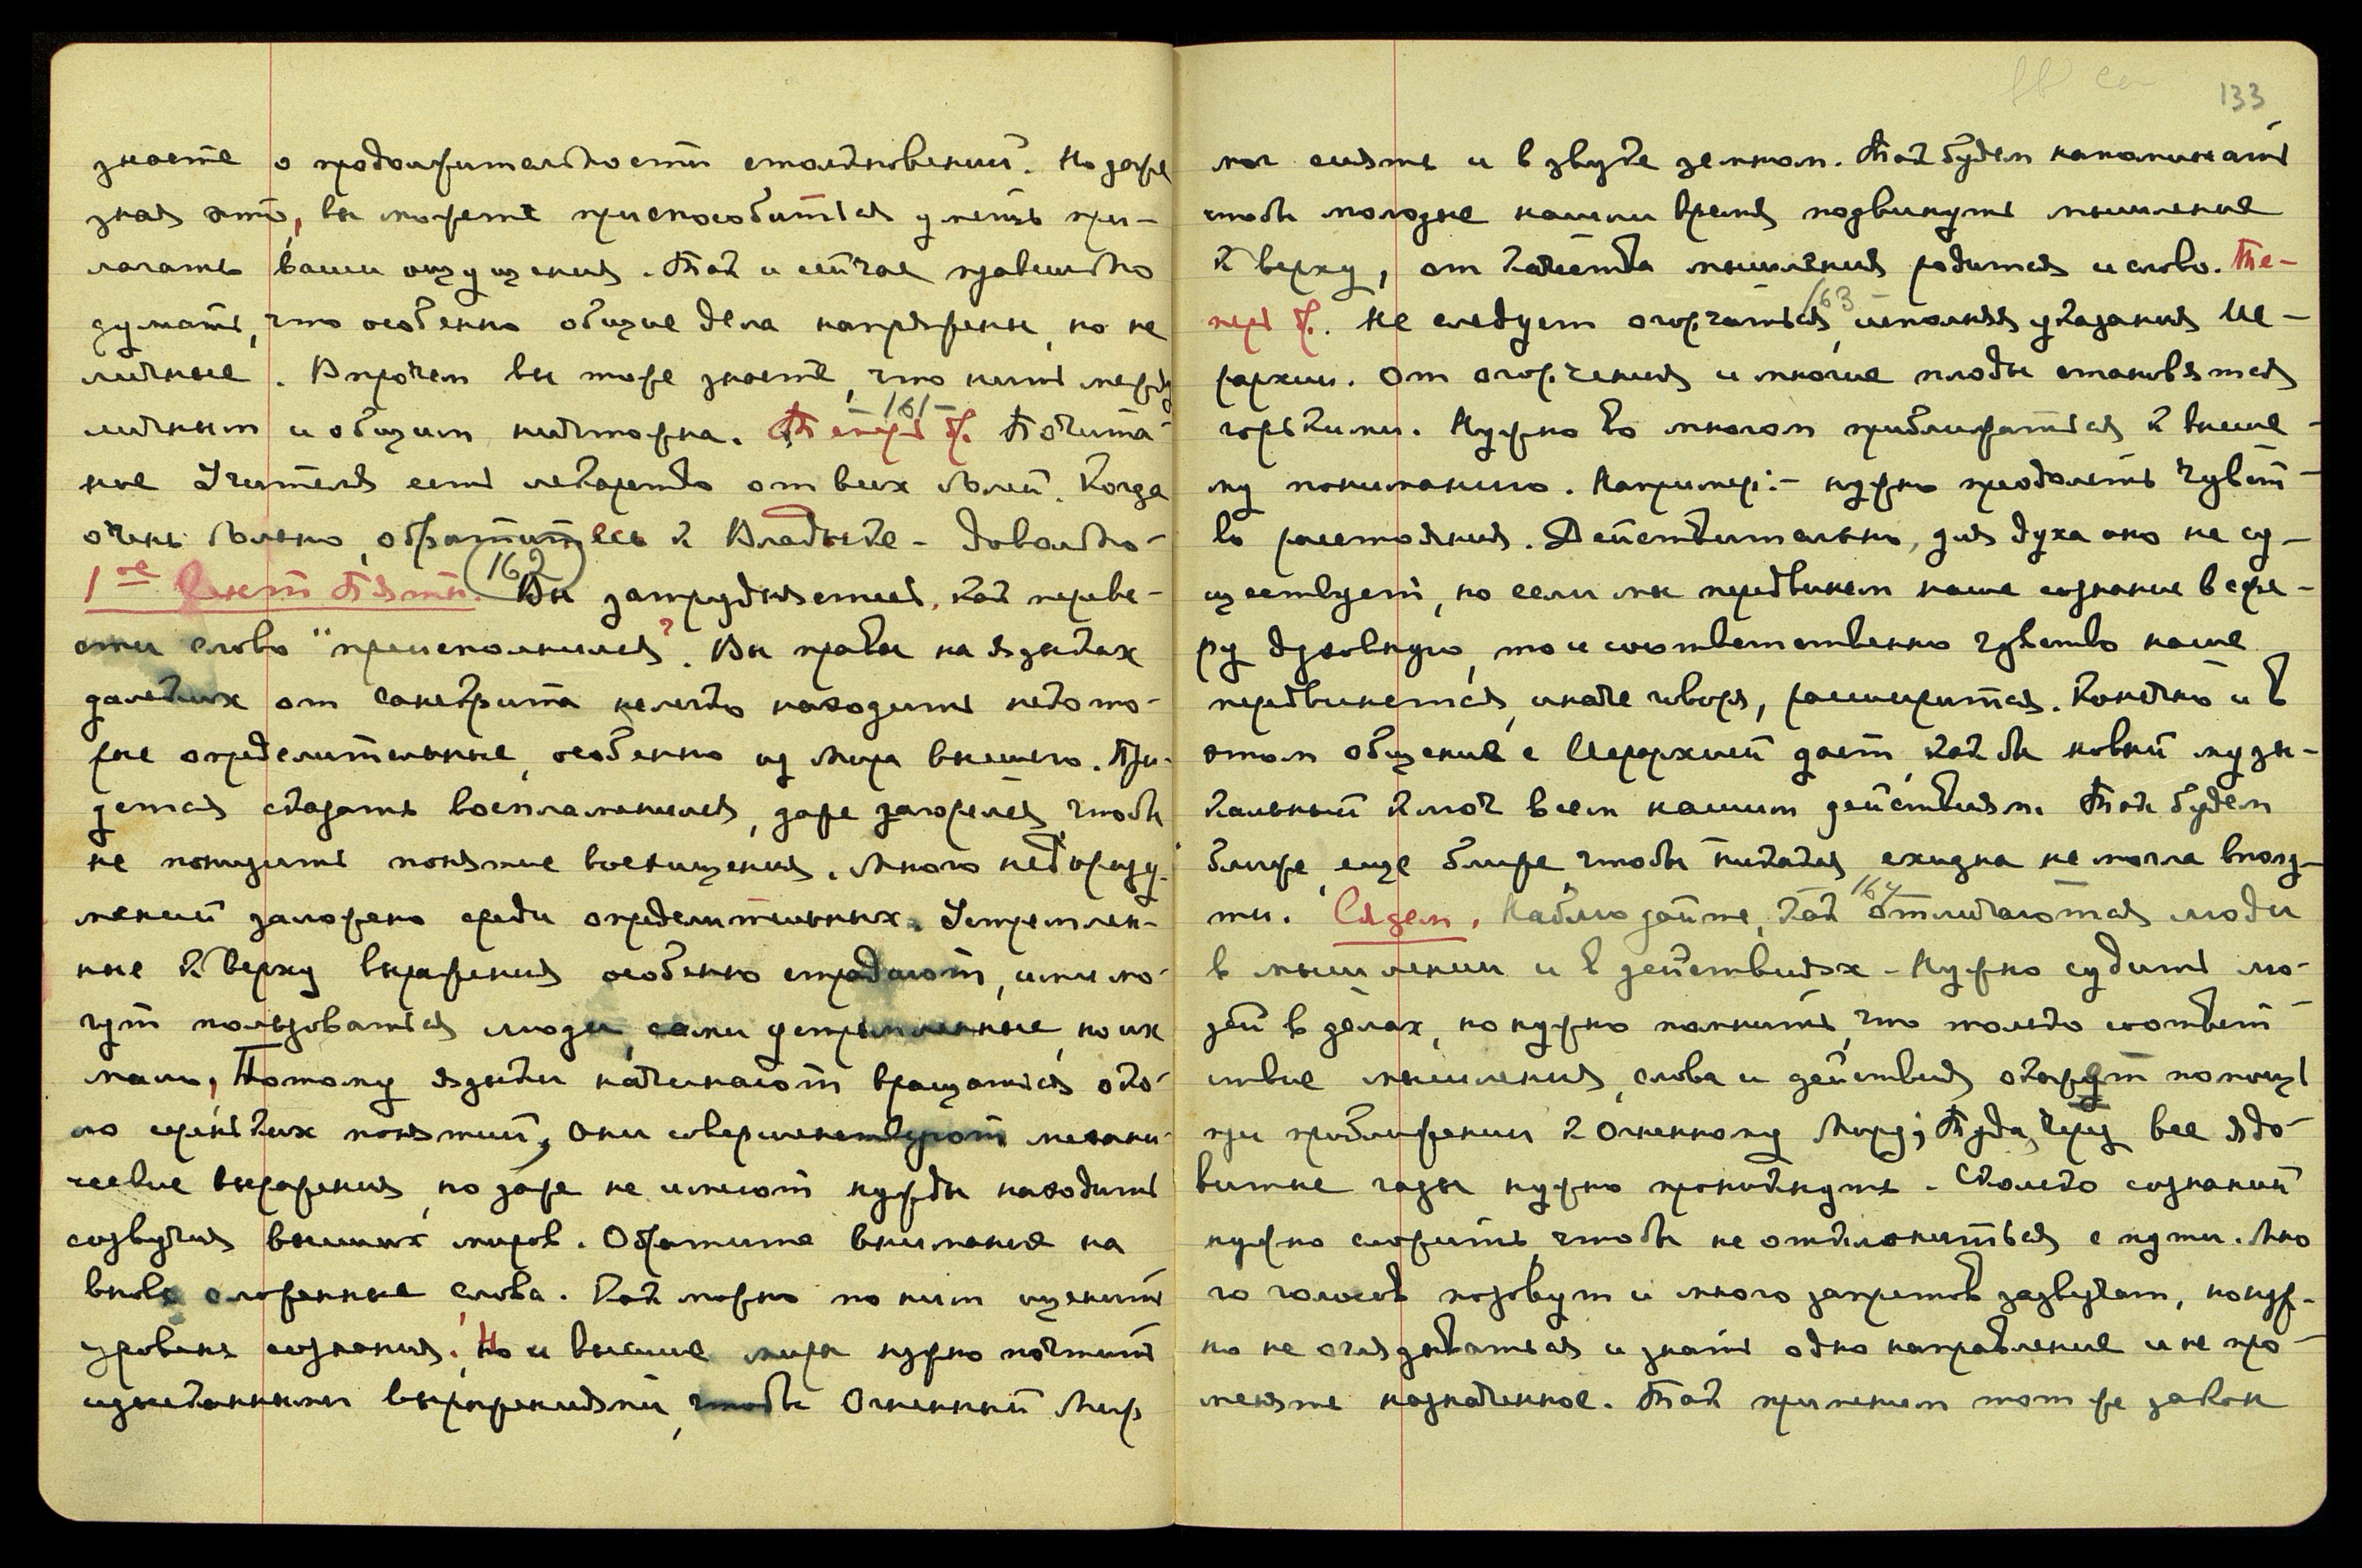 133
знаете о продолжительности столкновений. Но даже
зная это, вы можете приспособиться уметь при-
лагать ваши ощущения. Так и сейчас правильно
думать, что особенно общие дела напряжены, но не
личные. Впрочем вы тоже знаете, что нить между
личным и общим ничтожна. -161- Теперь Почита-
ние Учителя есть лекарство от всех болей. Когда
очень больно, обратитесь к Владыке - довольно-
1ое (162) Вы затрудняетесь, как переве-
сти слово "преисполнился"? Вы правы на языках
далеких от Санскрита нелегко находить некото-
рые определительные, особенно из Мира высшего. При-
дется сказать воспламенился, даже загорелся, чтобы
не понизить понятие восхищения. Много недоразу-
мений заложено среди определительных. Устремлен-
ные кверху выражения особенно страдают, ими мо-
гут пользоваться люди сами устремленные, но их
мало, Потому языки начинают вращаться око-
ло средних понятий, Они совершенствуют механи-
ческие выражения, но даже не имеют нужды находить
созвучия высших миров. Обратите внимание на
вновь сложенные слова. Как можно по ним оценить
уровень сознания. Но и высшие миры нужно почтить
изысканными выражениями, чтобы Огненный Мир
мог сиять и в звуке земном. Так будем напоминать
чтобы молодые нашли время подвинуть мышление
кверху, от качества мышления родится и слово. Те-
перь 163 Не следует огорчаться, исполняя указания Ие-
рархии. От огорчения и многие плоды становятся
горькими. Нужно во многом приблизаться к высше-
му пониманию. Например: - нужно преодолеть чувст-
во расстояния. Действительно, для духа оно не су-
ществует, но если мы передвинем наше сознание в сфе-
ру духовную, то и соответственно чувство наше
передвинется, иначе говоря, расширится. Конечно и в
этом общение с Иерархией дает как бы новый музы-
кальный ключ всем нашим действиям. Так будем
ближе, еще ближе, чтобы никакая ехидна не могла вполз-
ти. Сядем. 164 Наблюдайте, как отличаются люди
в мышлении и в действиях - Нужно судить лю-
дей в делах, но нужно помнить, что только соответ-
ствие мышления, слова и действия окажут помощь
при приближении к Огненному Миру; Туда через все ядо-
витые газы нужно проникнуть. Сколько сознаний
нужно сложить, чтобы не отклониться с пути. Мно
го голосов позовут и много запретов зазвучат, но нуж-
но не оглядываться и знать одно направление и не про-
меняте назначенное. Так применим тот же закон